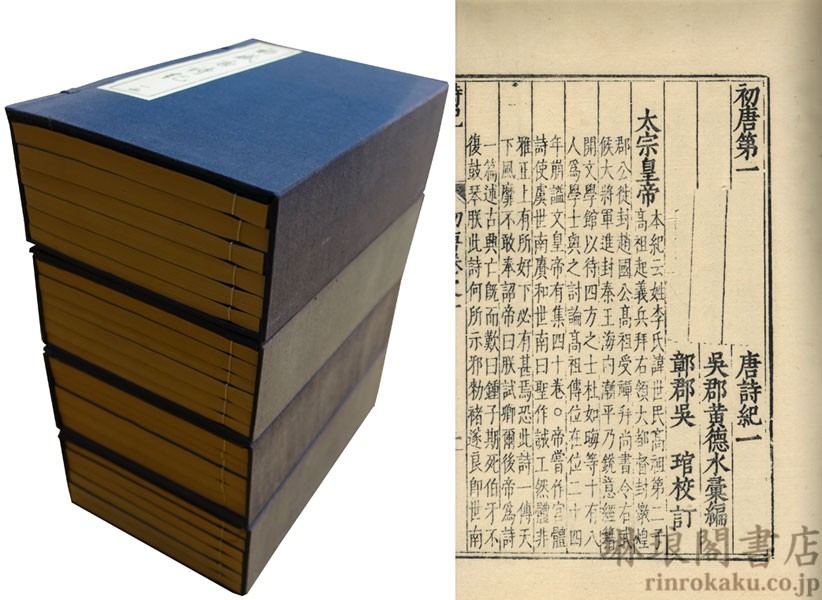 初唐第一 唐詩紀一
吳郡黃德水彙編
鄣郡吳 琯校訂
太宗皇帝
本紀云姓李氏諱世民高祖第二子
高祖起義兵拜右領大都督封燉煌
郡公徙封趙國公高祖受禪拜尚書令右武
候大將軍進封秦王海內漸平乃銳意經籍
開文學館以待四方之士杜如晦等十有八
人爲學士與之討論高祖傳位在位二十四
年崩謚文皇帝有集四十卷。帝嘗作宮體
詩使虞世南賡和世南曰聖作誠工然體非
雅正上有所好下必有甚焉恐此詩一傳天
下風靡不敢奉詔帝曰朕試卿爾後帝爲詩
一篇述古興亡既而歎曰鍾子期死伯牙不
復鼓琴朕此詩何所示邪勑褚遂良即世南
琳琅閣書店
rinrokaku.co.jp